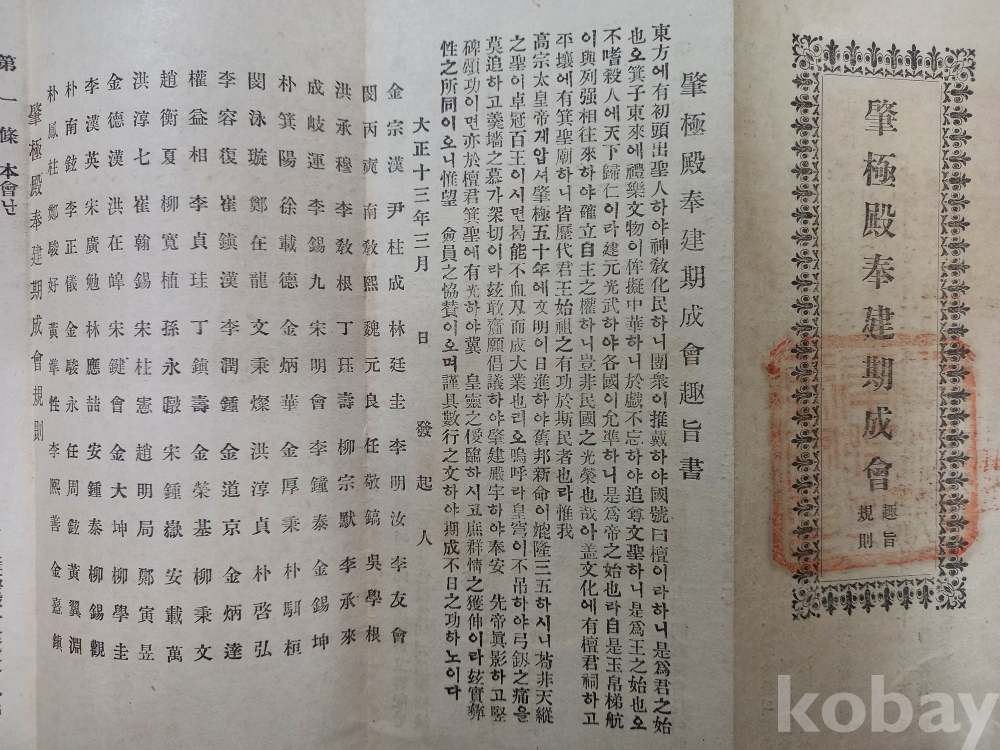 肇極殿奉建期成會 趣旨
規則
肇極殿奉建期成會趣旨書
東方에有初頭出聖人하야神敎化民하니團衆이推戴하야國號曰檀이라하니是爲君之始
也오箕子東來에禮樂文物이侔擬中華하니於戲不忘하야追尊文聖하니是爲王之始也오
不嗜殺人에天下歸仁이라建元光武하야各國이允準하니是爲帝之始也라自是玉帛梯航
이與列强相往來하야確立自主之權하니豈非民國之光榮也哉아盖文化에有檀君祠하고
平壤에有箕聖廟하니皆歷代君王始祖之有功於斯民者也라惟我
高宗太皇帝게압셔肇極五十年에文明이日進하야舊邦新命이嫓隆三五하시니若非天縱
之聖이卓冠百王이시면曷能不血刃而成大業也리오嗚呼라皇穹이不吊하야弓釼之痛을
莫追하고羹墻之慕가深切이라玆敢齋願倡議하야肇建殿宇하야奉安 先帝眞影하고竪
碑頌功이면亦於檀君箕聖에有光하야冀 皇靈之僾臨하시고庶群情之獲伸이라玆實彛
性之所同이오니惟望 僉員之協贊이오며謹具數行之文하야期成不日之功하노이다
大正十三年三月 日 發起人
金宗漢 尹桂成 林廷圭 李明汝 李友會
閔丙奭 南敎熙 魏元良 任敬鎬 吳學根
洪承穆 李敎根 丁珏壽 柳宗默 李承來
成岐運 李錫九 宋明會 李鐘泰 金錫坤
朴箕陽 徐載德 金炳華 金厚秉 朴駬桓
閔泳璇 鄭在龍 文秉燦 洪淳貞 朴啓弘
李容復 崔鎭漢 李潤鍾 金道京 金炳達
權益相 李貞珪 丁鎭壽 金榮基 柳秉文
趙衡夏 柳寬植 孫永 宋鍾嶽 安載萬
洪淳七 崔翰錫 宋柱憲 趙明局 鄭寅昱
金德漢 洪在皥 宋鍵會 金大坤 柳學圭
李漢英 宋廣勉 林應喆 安鍾泰 柳錫觀
朴南鉉 李正儀 金駿永 任周鉉 黃翼淵
朴鳳柱 鄭駿好 黃準性 李熙善 金嘉鎭
肇極殿奉建期成會規則
第一條 本會난
kobay